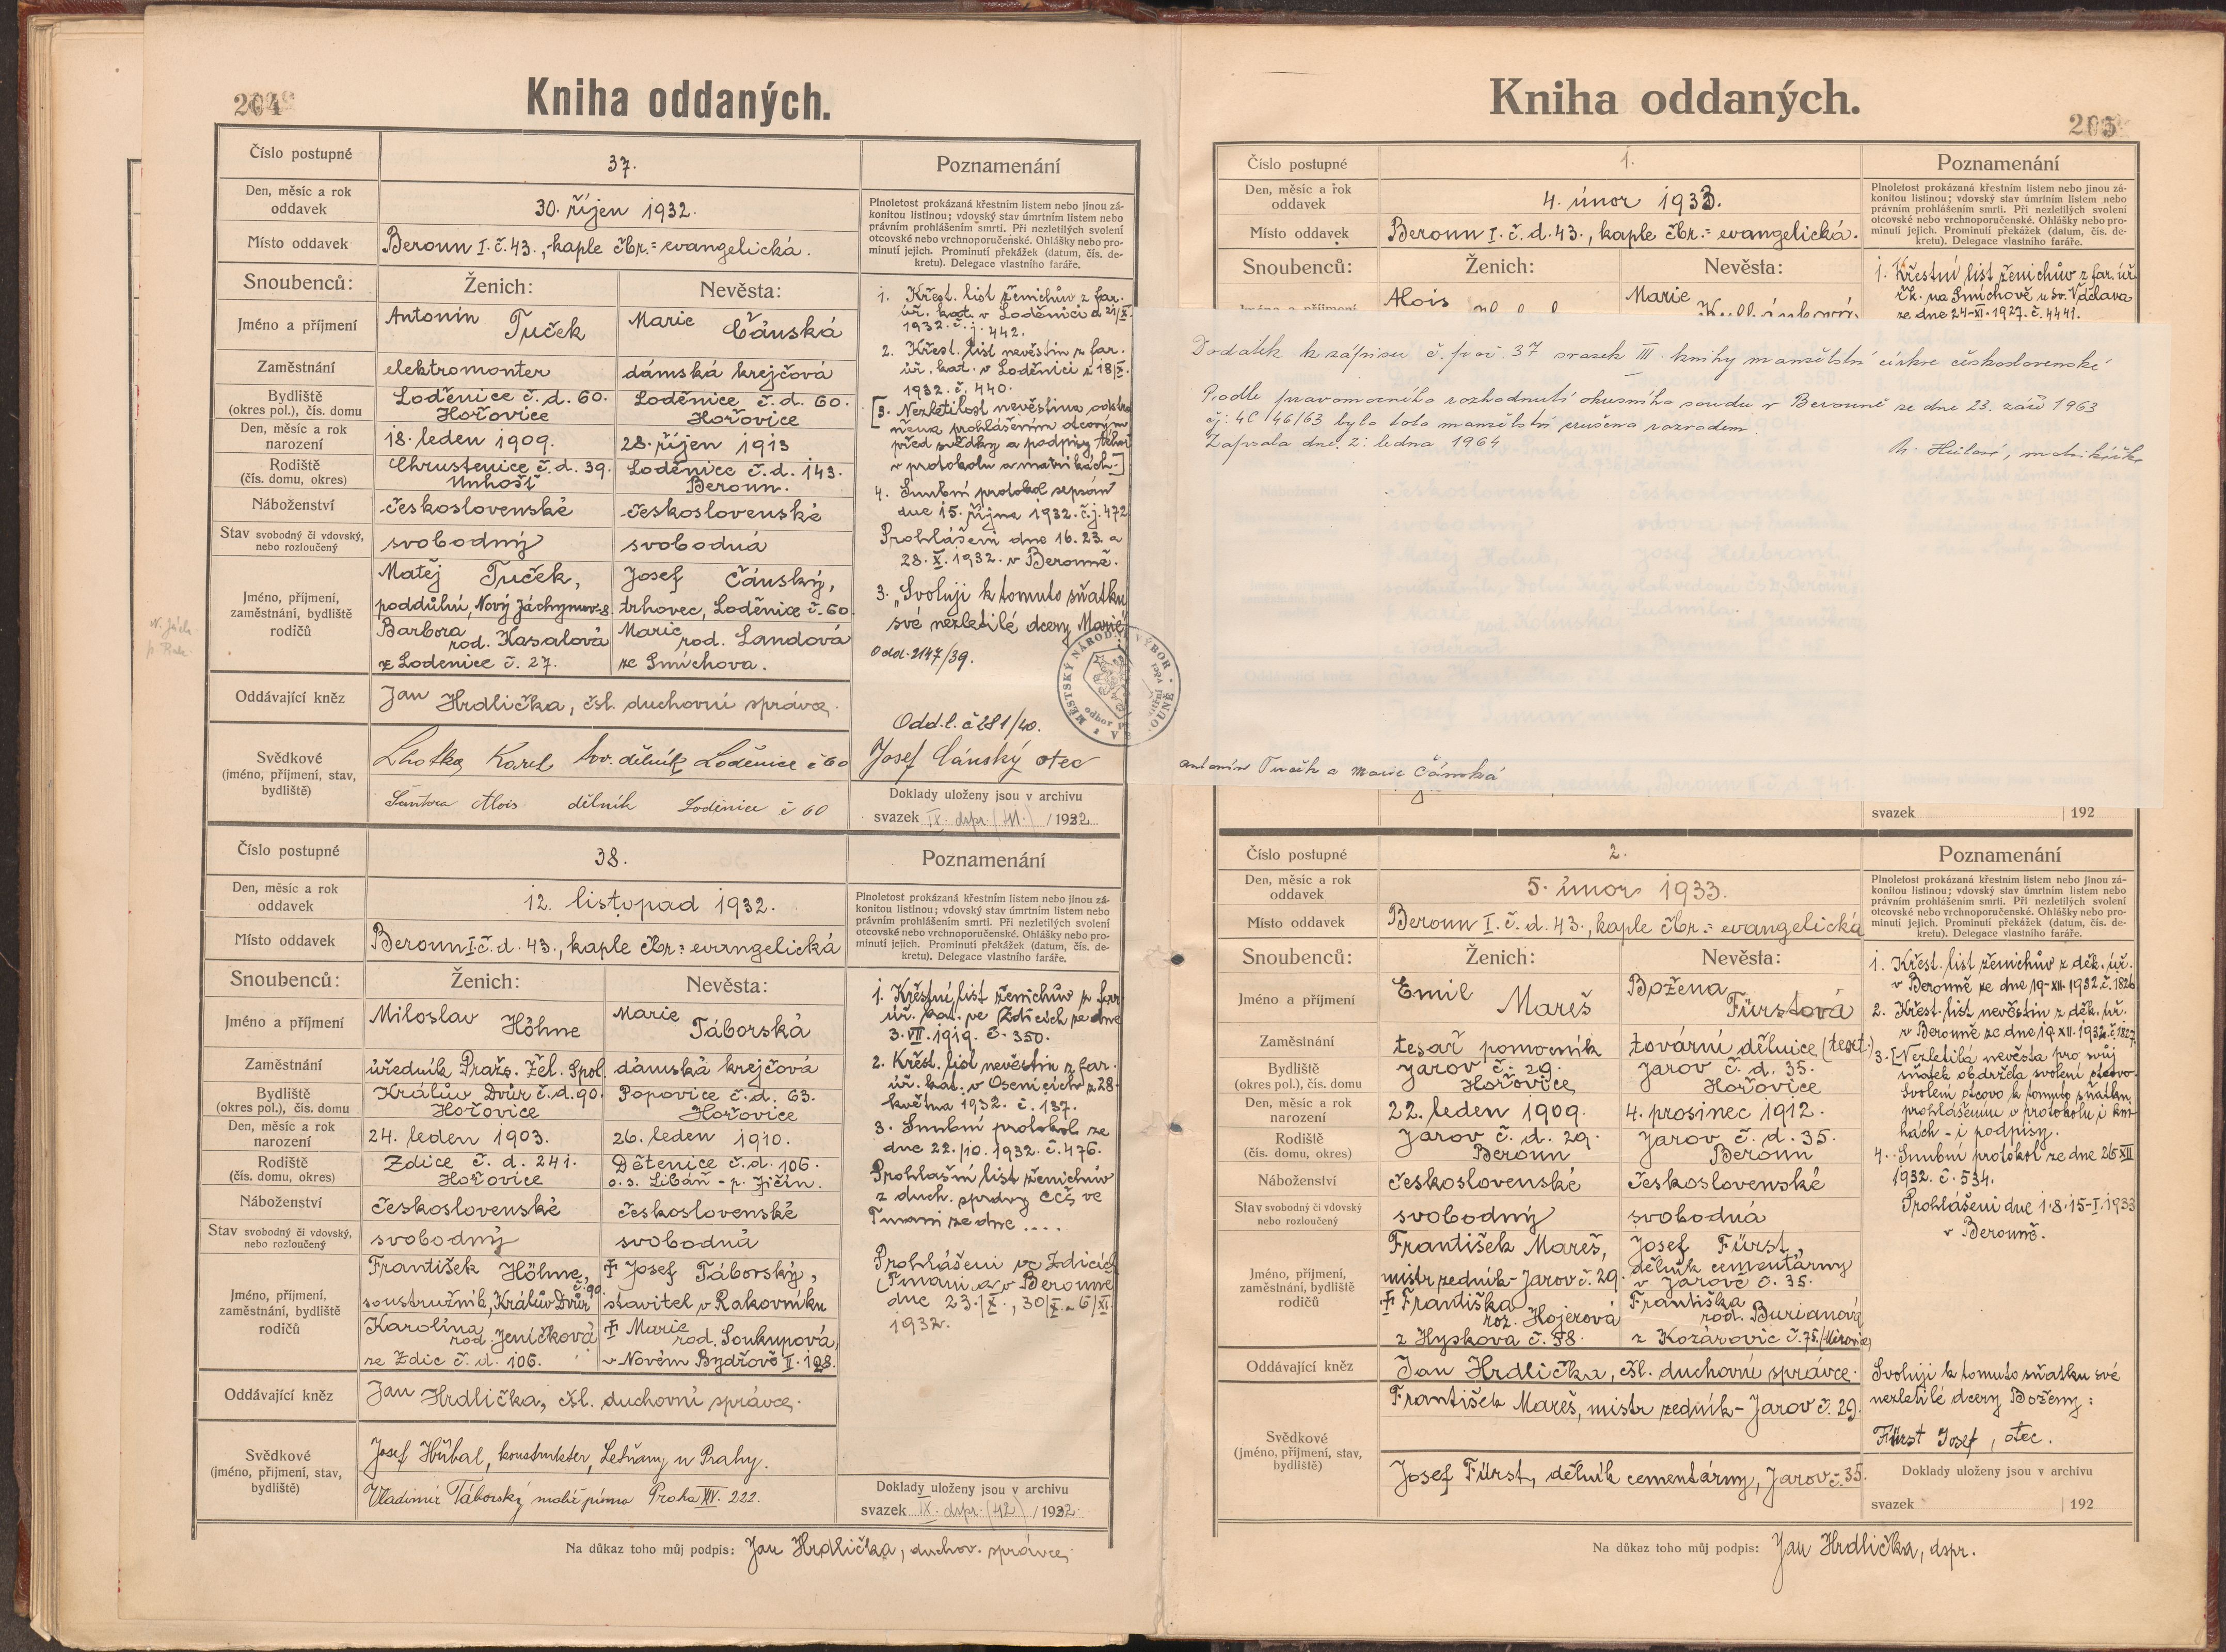 204
Kniha oddaných.
Číslo postupné
37.
Poznamenání
Den, měsíc a rok
oddavek
30. říjen 1932.
Plnoletost prokázaná křestním listem nebo jinou zá-
konitou listinou; vdovský stav úmrtním listem nebo
právním prohlášením smrti. Při nezletilých svolení
otcovské nebo vrchnoporučenské. Ohlášky nebo pro-
minutí jejich. Prominutí překážek (datum, čís. de-
kretu). Delegace vlastního faráře.
Místo oddavek
Beroun I. č. 43., kaple čbr.= evangelická.
Snoubenců:
Ženich:
Nevěsta:
Jméno a příjmení
Antonín Tuček
Marie Čánská
Zaměstnání
elektromonter
dámská krejčová
Bydliště
(okres pol.), čís. domu
Loděnice č. d. 60.
Hořovice
Loděnice č. d. 60.
Hořovice
Den, měsíc a rok
narození
18. leden 1909.
28. říjen 1913
Rodiště
(čís. domu, okres)
Chrustenice č. d. 39.
Unhošť
Loděnice č. d. 143.
Beroun.
Náboženství
československé
československé
Stav svobodný či vdovský,
nebo rozloučený
svobodný
svobodná
Jméno, příjmení,
zaměstnání, bydliště
rodičů
Matěj Tuček,
poddůlní, Nový Jáchymov 8.
Barbora
rod. Kasalová
z Loděnice č. 27.
Josef Čánský,
trhovec, Loděnice č. 60.
Marie
rod. Landová
ze Smíchova.
Oddávající kněz
Jan Hrdlička, čsl. duchovní správce.
Svědkové
(jméno, příjmení, stav,
bydliště)
Lhotka Karel tov. dělník Loděnice č 60
Šantora Alois dělník Loděnice č 60
1. Křest. list ženichův z far.
úř. kat. v Loděnici d 21/X.
1932. č. j. 442.
2. Křest. list nevěstin z far.
úř. kat. v Loděnici z 18/X.
1932. č. 440.
[3. Nezletilost nevěstina odstra
něna prohlášením otcovým
před svědky a podpisy téhož
v protokolu a matrikách.]
4. Snubní protokol sepsán
dne 15. října 1932. č. j. 472
Prohlášení dne 16. 23. a
28. X. 1932. v Berouně.
3. „Svoluji k tomuto sňatku
své nezletilé dcery Marie“
Odd. 2147/39.
Odd. l. č 281/40.
Josef Čánský otec
MĚSTSKÝ NÁRODNÍ VÝBOR
Doklady uloženy jsou v archivu
svazek IX. dspr. (41.) /1932
Číslo postupné
38.
Poznamenání
Den, měsíc a rok
oddavek
12. listopad 1932.
Plnoletost prokázaná křestním listem nebo jinou zá-
konitou listinou; vdovský stav úmrtním listem nebo
právním prohlášením smrti. Při nezletilých svolení
otcovské nebo vrchnoporučenské. Ohlášky nebo pro-
minutí jejich. Prominutí překážek (datum, čís. de-
kretu). Delegace vlastního faráře.
Místo oddavek
Beroun I č. d. 43., kaple čbr.= evangelická
Snoubenců:
Ženich:
Nevěsta:
Jméno a příjmení
Miloslav Höhne
Marie Táborská
Zaměstnání
úředník Praž. Žel. Spol.
dámská krejčová
Bydliště
(okres pol.), čís. domu
Králův Dvůr č. d. 90.
Hořovice
Popovice č. d. 63.
Hořovice
Den, měsíc a rok
narození
24. leden 1903.
26. leden 1910.
Rodiště
(čís. domu, okres)
Zdice č. d. 241.
Hořovice
Dětenice č. d. 106.
o. s. Libáň - p. Jičín.
Náboženství
československé
československé
Stav svobodný či vdovský,
nebo rozloučený
svobodný
svobodná
Jméno, příjmení,
zaměstnání, bydliště
rodičů
František Höhne,
č. 90.
soustružník, Králův Dvůr
Karolína
rod. Jeníčková
ze Zdic č. d. 106.
‡ Josef Táborský,
stavitel v Rakovníku
‡ Marie
rod. Soukupová,
v Novém Bydžově II. 128.
Oddávající kněz
Jan Hrdlička, čsl. duchovní správce.
Svědkové
(jméno, příjmení, stav,
bydliště)
Josef Hřúbal, konstruktér, Letňany u Prahy.
Vladimír Táborský malíř písma Praha XIV. 222.
1. Křestní list ženichův z far.
úř. kat. ve Zdicích ze dne
3. VII. 1919. č. 350.
2. Křest. list nevěstin z far.
úř. kat. v Osenicích z 28.
května 1932. č. 137.
3. Snubní protokol ze
dne 22./10. 1932. č. 476.
Prohlašní list ženichův
z duch. správy CČS ve
Tmani ze dne ....
Prohlášení ve Zdicích
(Tmani) a v Berouně
dne 23./X., 30/X. a 6/XI.
1932.
Doklady uloženy jsou v archivu
svazek IX. dspr. (42) /1932.
Na důkaz toho můj podpis: Jan Hrdlička, duchov. správce.
Kniha oddaných.
205
Číslo postupné
1.
Poznamenání
Den, měsíc a rok
oddavek
4. únor 1933.
Plnoletost prokázaná křestním listem nebo jinou zá-
konitou listinou; vdovský stav úmrtním listem nebo
právním prohlášením smrti. Při nezletilých svolení
otcovské nebo vrchnoporučenské. Ohlášky nebo pro-
minutí jejich. Prominutí překážek (datum, čís. de-
kretu). Delegace vlastního faráře.
Místo oddavek
Beroun I. č. d. 43., kaple čbr.= evangelická.
Snoubenců:
Ženich:
Nevěsta:
Alois
Marie
1. Křestní list ženichův z far. úř.
řk. na Smíchově u sv. Václava
ze dne 24-XI-1927. č. 4441.
Dodatek k zápisu č. poř. 37 svazek III. knihy manželství církve československé
Podle pravomocného rozhodnutí okresního soudu v Berouně ze dne 23. září 1963
čj: 4C 146/63 bylo toto manželství zrušeno rozvodem.
Zapsala dne: 2. ledna 1964
matrikářka
Antonín Tuček a Marie Čánská
svazek 192
Číslo postupné
2.
Poznamenání
Den, měsíc a rok
oddavek
5. únor 1933.
Plnoletost prokázaná křestním listem nebo jinou zá-
konitou listinou; vdovský stav úmrtním listem nebo
právním prohlášením smrti. Při nezletilých svolení
otcovské nebo vrchnoporučenské. Ohlášky nebo pro-
minutí jejich. Prominutí překážek (datum, čís. de-
kretu). Delegace vlastního faráře.
Místo oddavek
Beroun I. č. d. 43., kaple čbr.= evangelická
Snoubenců:
Ženich:
Nevěsta:
Jméno a příjmení
Emil Mareš
Božena Fürstová
Zaměstnání
tesař pomocník
tovární dělnice (text.)
Bydliště
(okres pol.), čís. domu
Jarov č. 29.
Hořovice
Jarov č. d. 35.
Hořovice
Den, měsíc a rok
narození
22. leden 1909.
4. prosinec 1912.
Rodiště
(čís. domu, okres)
Jarov č. d. 29.
Beroun
Jarov č. d. 35.
Beroun
Náboženství
československé
československé
Stav svobodný či vdovský
nebo rozloučený
svobodný
svobodná
Jméno, příjmení,
zaměstnání, bydliště
rodičů
František Mareš,
mistr zedník - Jarov č. 29.
‡ Františka
roz. Hojerová
z Hyskova č. 58.
Josef Fürst,
dělník cementárny
v Jarově č. 35.
Františka
rod. Burianová
z Kozárovic č. 75. (Mirovice)
Oddávající kněz
Jan Hrdlička, čsl. duchovní správce.
Svědkové
(jméno, příjmení, stav,
bydliště)
František Mareš, mistr zedník - Jarov č. 29.
Josef Fürst, dělník cementárny, Jarov č. 35.
1. Křest. list ženichův z děk. úř.
v Berouně ze dne 19-XII-1932. č. 1826
2. Křest. list nevěstin z děk. úř.
v Berouně ze dne 19. XII. 1932. č. 1827
3. [Nezletilá nevěsta pro svůj
sňatek obdržela svolení otcovo.
Svolení otcovo k tomuto sňatku
prohlášením v protokolu i kni-
hách - i podpisy.
4. Snubní protokol ze dne 26 XII
1932. č. 534.
Prohlášení dne 1. 8. 15-I. 1933
v Berouně.
Svoluji k tomuto sňatku své
nezletilé dcery Boženy:
Fürst Josef, otec.
Doklady uloženy jsou v archivu
svazek 192
Na důkaz toho můj podpis: Jan Hrdlička, dspr.